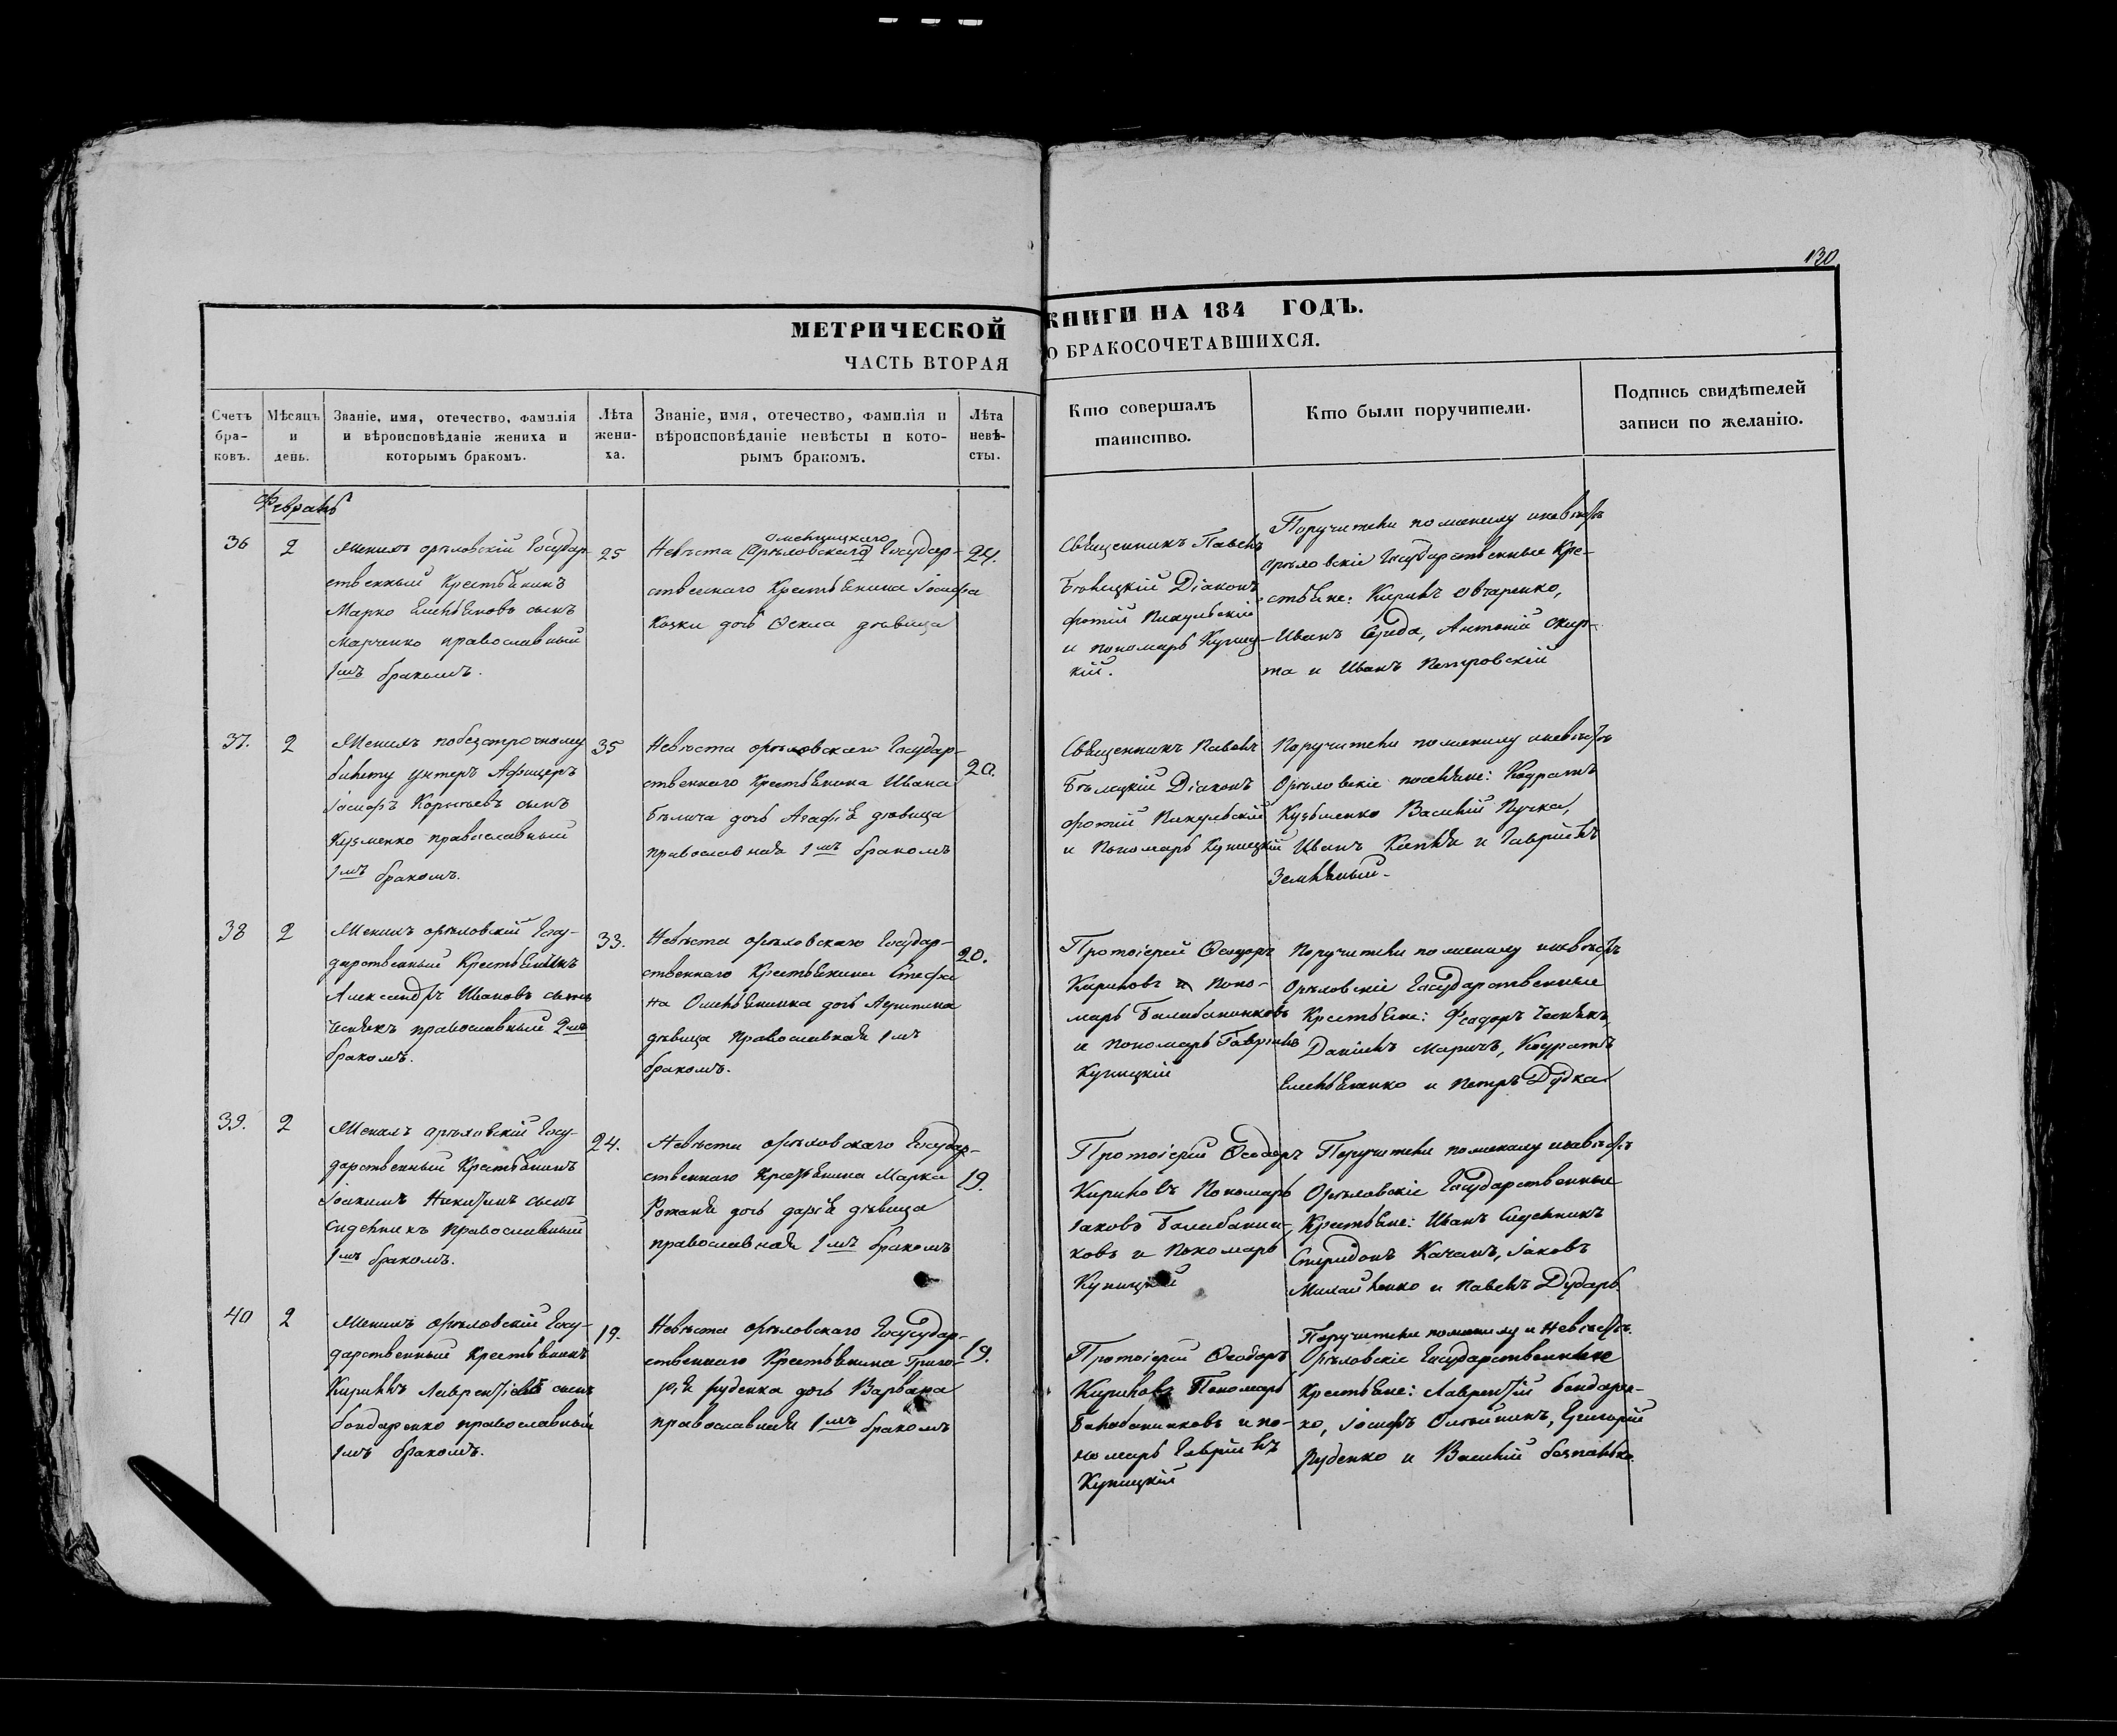 130
МЕТРИЧЕСКОЙ КНИГИ НА 184 ГОДЪ.
ЧАСТЬ ВТОРАЯ О БРАКОСОЧЕТАВШИХСЯ.
Счетъ бра-ковъ.
Мѣсяцъ и день.
Званіе, имя, отечество, фамилія
и вѣроисповѣданіе жениха и
которымъ бракомъ.
Лѣта жени-ха.
Званіе, имя, отечество, фамилія и
вѣроисповѣданіе невѣсты и кото-
рымъ бракомъ.
Лѣта невѣ-сты.
Кто совершалъ
таинство.
Кто были поручители.
Подпись свидѣтелей
записи по желанію.
Февраль
36
2
Женихъ орѣловскій Государ-
ственный Крестьянинъ
Марко Емельяновъ сынъ
Марченко православный
1мъ бракомъ.
25
Омельницкаго
Невѣста (Орѣловскаго) Государ-
ственнаго Крестьянина Іосифа
Козки дочь Ѳекла дѣвица
24.
Священникъ Павелъ
Бѣлецкій Діаконъ
фотій Пикульскій
и пономарь Купиц-
кій.
Поручители по жениху и невѣстѣ
орѣловскіе Государственные Кре-
стьяне: Кирилъ Овчаренко,
Иванъ Середа, Антоній Скир-
та и Иванъ Петровскій
37.
2
Женихъ побезсрочному
билету унтеръ Афицеръ
Іосифъ Корнѣевъ сынъ
Кузменко православный
1мъ бракомъ.
35
Невѣста орѣловскаго Государ-
ственнаго Крестьянина Ивана
Бѣлича дочь Агафія дѣвица
православная 1мъ бракомъ
20.
Священникъ Павелъ
Бѣлецкій Діаконъ
фотій Пикульскій
и Пономарь Купицкій
Поручители по жениху и невѣстѣ
Орѣловскіе поселяне: Кодратъ
Кузьменко Василій Пучка,
Иванъ и Гавріилъ
Земляный.
38
2
Женихъ орѣловскій Госу-
дарственный Крестьянинъ
Александръ Ивановъ сынъ
православный 2мъ
бракомъ.
33.
Невѣста орѣловскаго Государ-
ственнаго Крестьянина Стефа
на Омельяненка дочь
дѣвица Православная 1мъ
бракомъ.
20.
Протоіерей Ѳеодоръ
Кириловъ и Поно-
марь Балабанниковъ
и пономарь Гавріилъ
Купицкій
Поручители по жениху и невѣстѣ
Орѣловскіе Государственные
Крестьяне: Феадоръ
Даніилъ Маричъ, Кодратъ
Емельяненко и Петръ Дудка
39.
2
Женихъ орѣловскій Госу-
дарственный Крестьянинъ
Іоакимъ Никитинъ сынъ
Сидельникъ Православный
1мъ бракомъ.
24.
Невѣста орѣловскаго Государ-
ственнаго Крестьянина Марка
дочь дарія дѣвица
православная 1мъ бракомъ
19.
Протоіерей Ѳеодоръ
Кириловъ Пономарь
Іаковъ Балабанни-
ковъ и Пономарь
Купицкій
Поручители по жениху и невѣстѣ
Орѣловскіе Государственные
Крестьяне: Иванъ
Спиридонъ Качанъ, Іаковъ
Михайленко и Павелъ Дударь.
40
2
Женихъ орѣловскій Госу-
дарственный Крестьянинъ
Кирилъ Лаврентіевъ сынъ
бондаренко православный
1мъ бракомъ.
19.
Невѣста орѣловскаго Госусудар-
ственнаго Крестьянина Григо-
рія руденка дочь Варвара
православная 1мъ бракомъ
19.
Протоіерей Ѳеодоръ
Кириловъ Пономарь
Балабанниковъ и по-
номарь Гавріилъ
Купицкій
Поручители по жениху и Невѣстѣ.
Орѣловскіе Государственные
крестьяне: Лаврентій бондарен-
ко, Іосифъ Олѣйникъ, Григорій
Руденко и Василій безпалько.